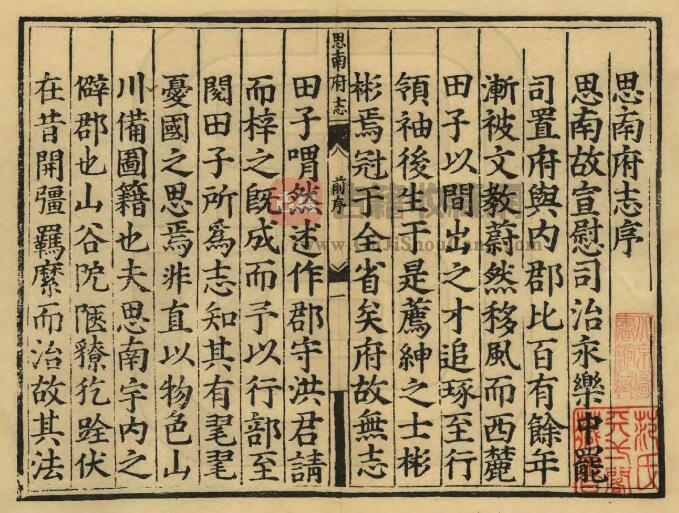 思南府志序
思南故宣慰司治永樂中罷
司置府與内郡比百有餘年
漸被文教蔚然移風而西麓
田子以間出之才追琢至行
領袖後生于是薦紳之士彬
彬焉冠于全省矣府故無志
思南府志
前序
一
田子喟然述作郡守洪君請
而梓之旣成而予以行部至
閱田子所爲志知其有毣毣
憂國之思焉非直以物色山
川備圖籍也夫思南宇内之
僻郡也山谷阨陿獠犵跧伏
在昔開彊羈縻而治故其法
范氏
天一閣